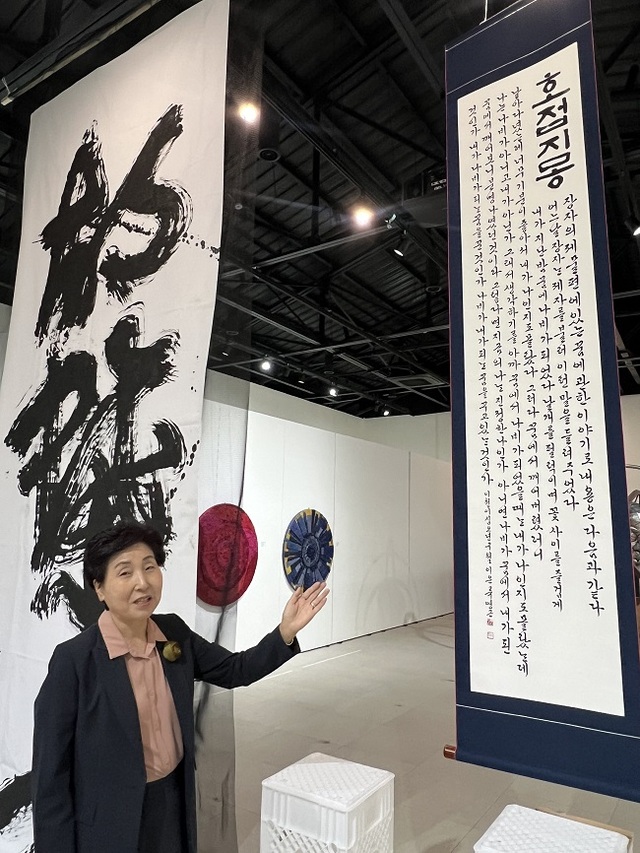 호접지몽
장자의 제물편에 있는 꿈에 관한 이야기로 내용은 다음과 같다
어느날 장자는 제자를 불러 이런 말을 들려주었다
내가 지난 밤 꿈에 나비가 되었다 날개를 펄럭이며 꽃 사이를 즐겁게
날아다녔는데 너무 기분이 좋아서 내가 나인지도 몰랐다 그러다 꿈에서 깨어버렸더니
나는 나비가 아니고 내가 아닌가 그래서 생각하기를 아까 꿈에서 나비가 되었을 때는 내가 나인지도 몰랐는데
꿈에서 깨어보니 분명 나였던 것이다 그렇다면 지금의 나는 진정한 나인가 아니면 나비가 꿈에서 내가 된
것인가 내가 나비가 되는 꿈을 꾼 것인가 나비가 내가 되는 꿈을 꾸고 있는 것인가